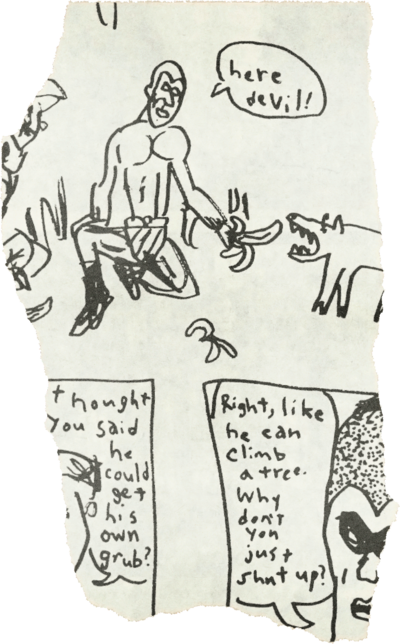 here
devil!
thought
you said
he
could
get
his
own
grub?
Right, like
he can
climb
a tree.
Why
don't
you
just
shut up?